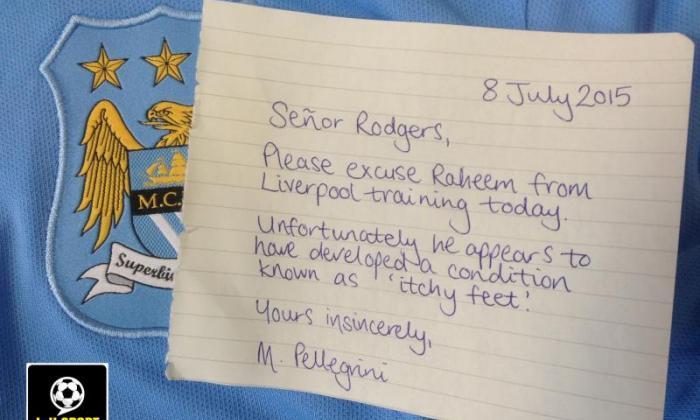 8 July 2015
Señor Rodgers,
Please excuse Raheem from
Liverpool training today.
Unfortunately he appears to
have developed a condition
known as 'itchy feet'.
Yours insincerely,
M. Pellegrini
M.C.